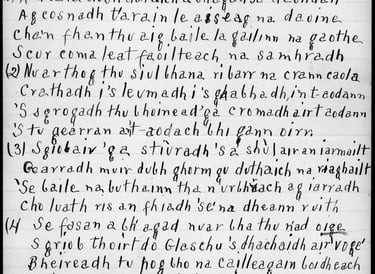 Ag cosnadh t'arain le asseag na daoine
Cha'n fhanthu aig baile la gailinn na gaothe
Scur coma leat faoilteach na samhradh
(2) Nuar thog thu siul bhana ri barr na crann caola
Crathadh i's leumadh i's gabhadh, int-aodann
'S sgrogadh thu bhoinead 'ga cromadh airt aodann
'S tu gearran ait-aodach bhi gann oirr.
(3) Sgiobair 'ga stiuradh 's a shuil air an iarmailt
Gearradh muir dubh ghorm gu duthaich na riaghailt
'Se baile na buthainn tha n'urbhach ag iarradh
Cho luath ris an fhiadh 'se 'na dheann ruith
(4) Se fasan a bh' agad nuar bha thu nad oige
Sgriob thoirt do Glaschu 's dhachaidh air voge
Bheireadh tu pog bho na cailleagain boidheach